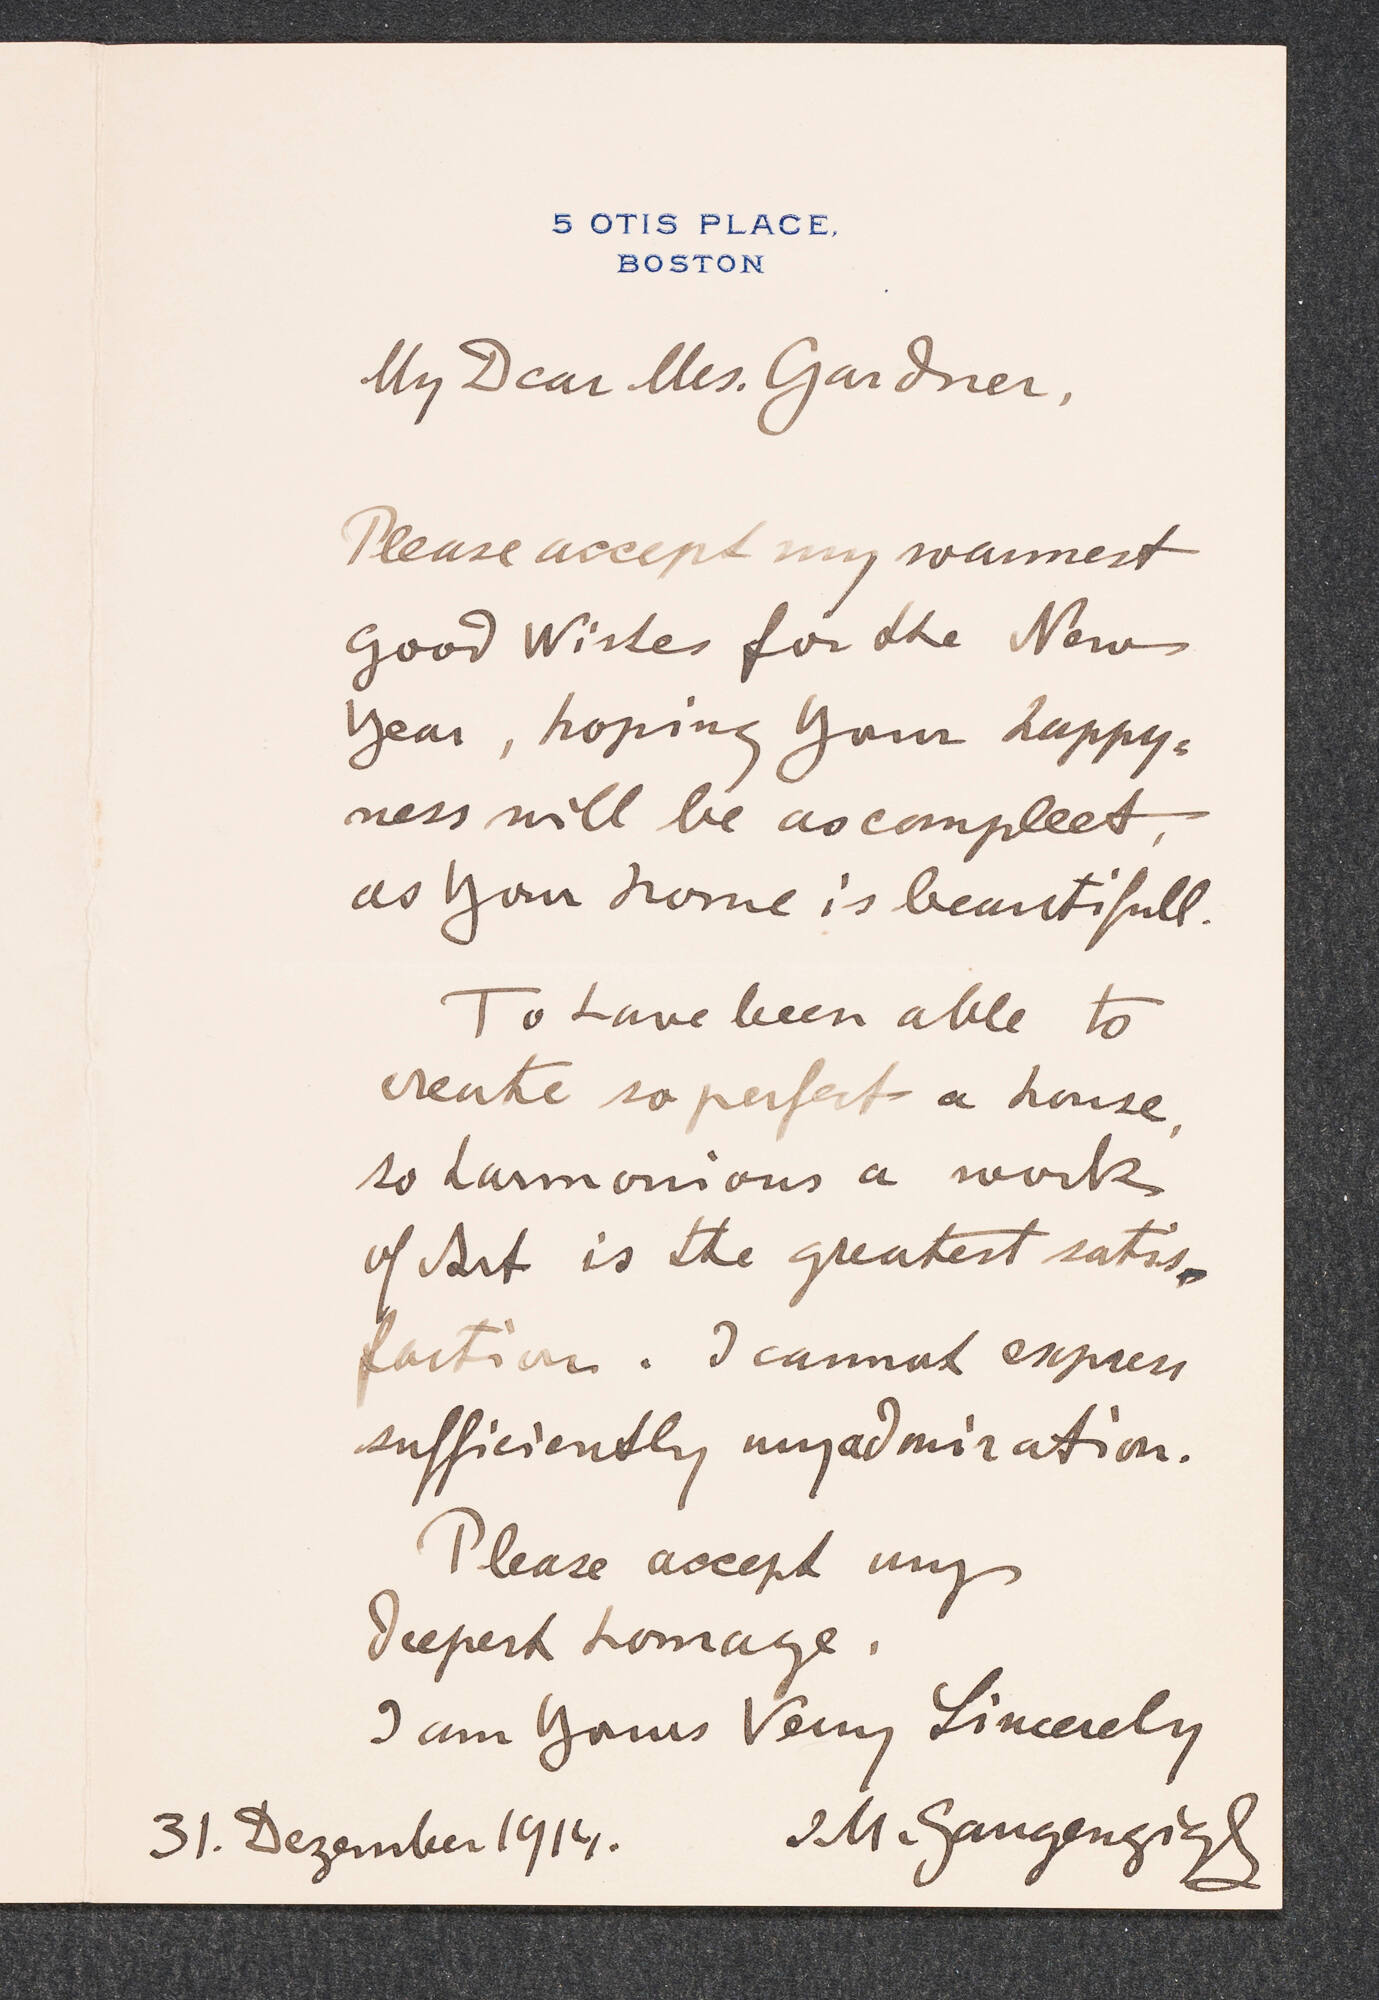 5 OTIS PLACE,
BOSTON
My Dear Mrs. Gardner,
Please accept my warmest
good Wishes for the New
Year, hoping Your happy=
ness will be as compleet,
as Your home is beautifull.
To have been able to
create so perfect a house,
so harmonious a work
of Art is the greatest satis-
faction. I cannot express
sufficiently my admiration.
Please accept my
deepest homage.
I am Yours Very Sincerely
31. Dezember 1914. I. M. Gaugengigl